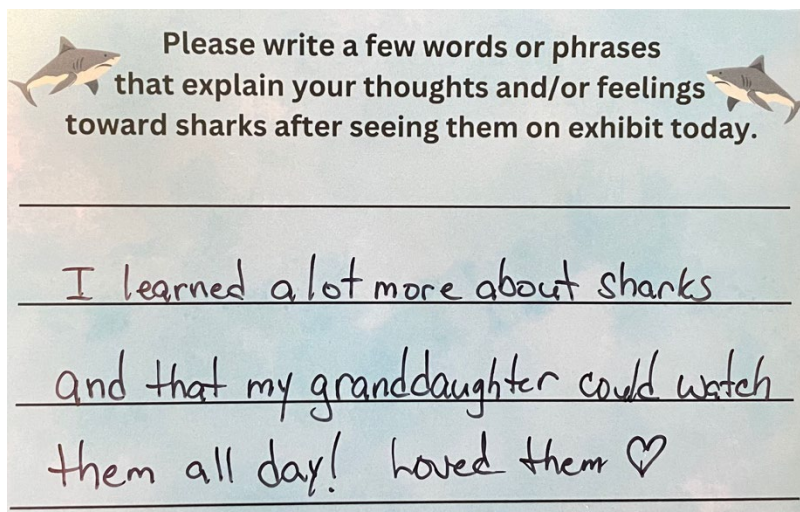 Please write a few words or phrases
that explain your thoughts and/or feelings
toward sharks after seeing them on exhibit today.
I learned a lot more about sharks
and that my granddaughter could watch
them all day! Loved them ♡